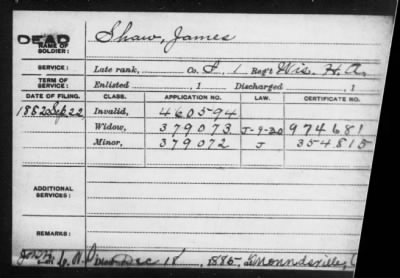 DEAD
NAME OF SOLDIER: Shaw, James
SERVICE: Late rank, Co. I, 1 Reg't Wis. H.A.
TERM OF SERVICE: Enlisted , 1 Discharged , 1
DATE OF FILING. CLASS. APPLICATION NO. LAW. CERTIFICATE NO.
1882 Sep. 22 Invalid, 460594
Widow, 379073 J-9-20 974681
Minor, 379072 J 354815
ADDITIONAL SERVICES:
REMARKS:
Died Dec 18, 1885, at